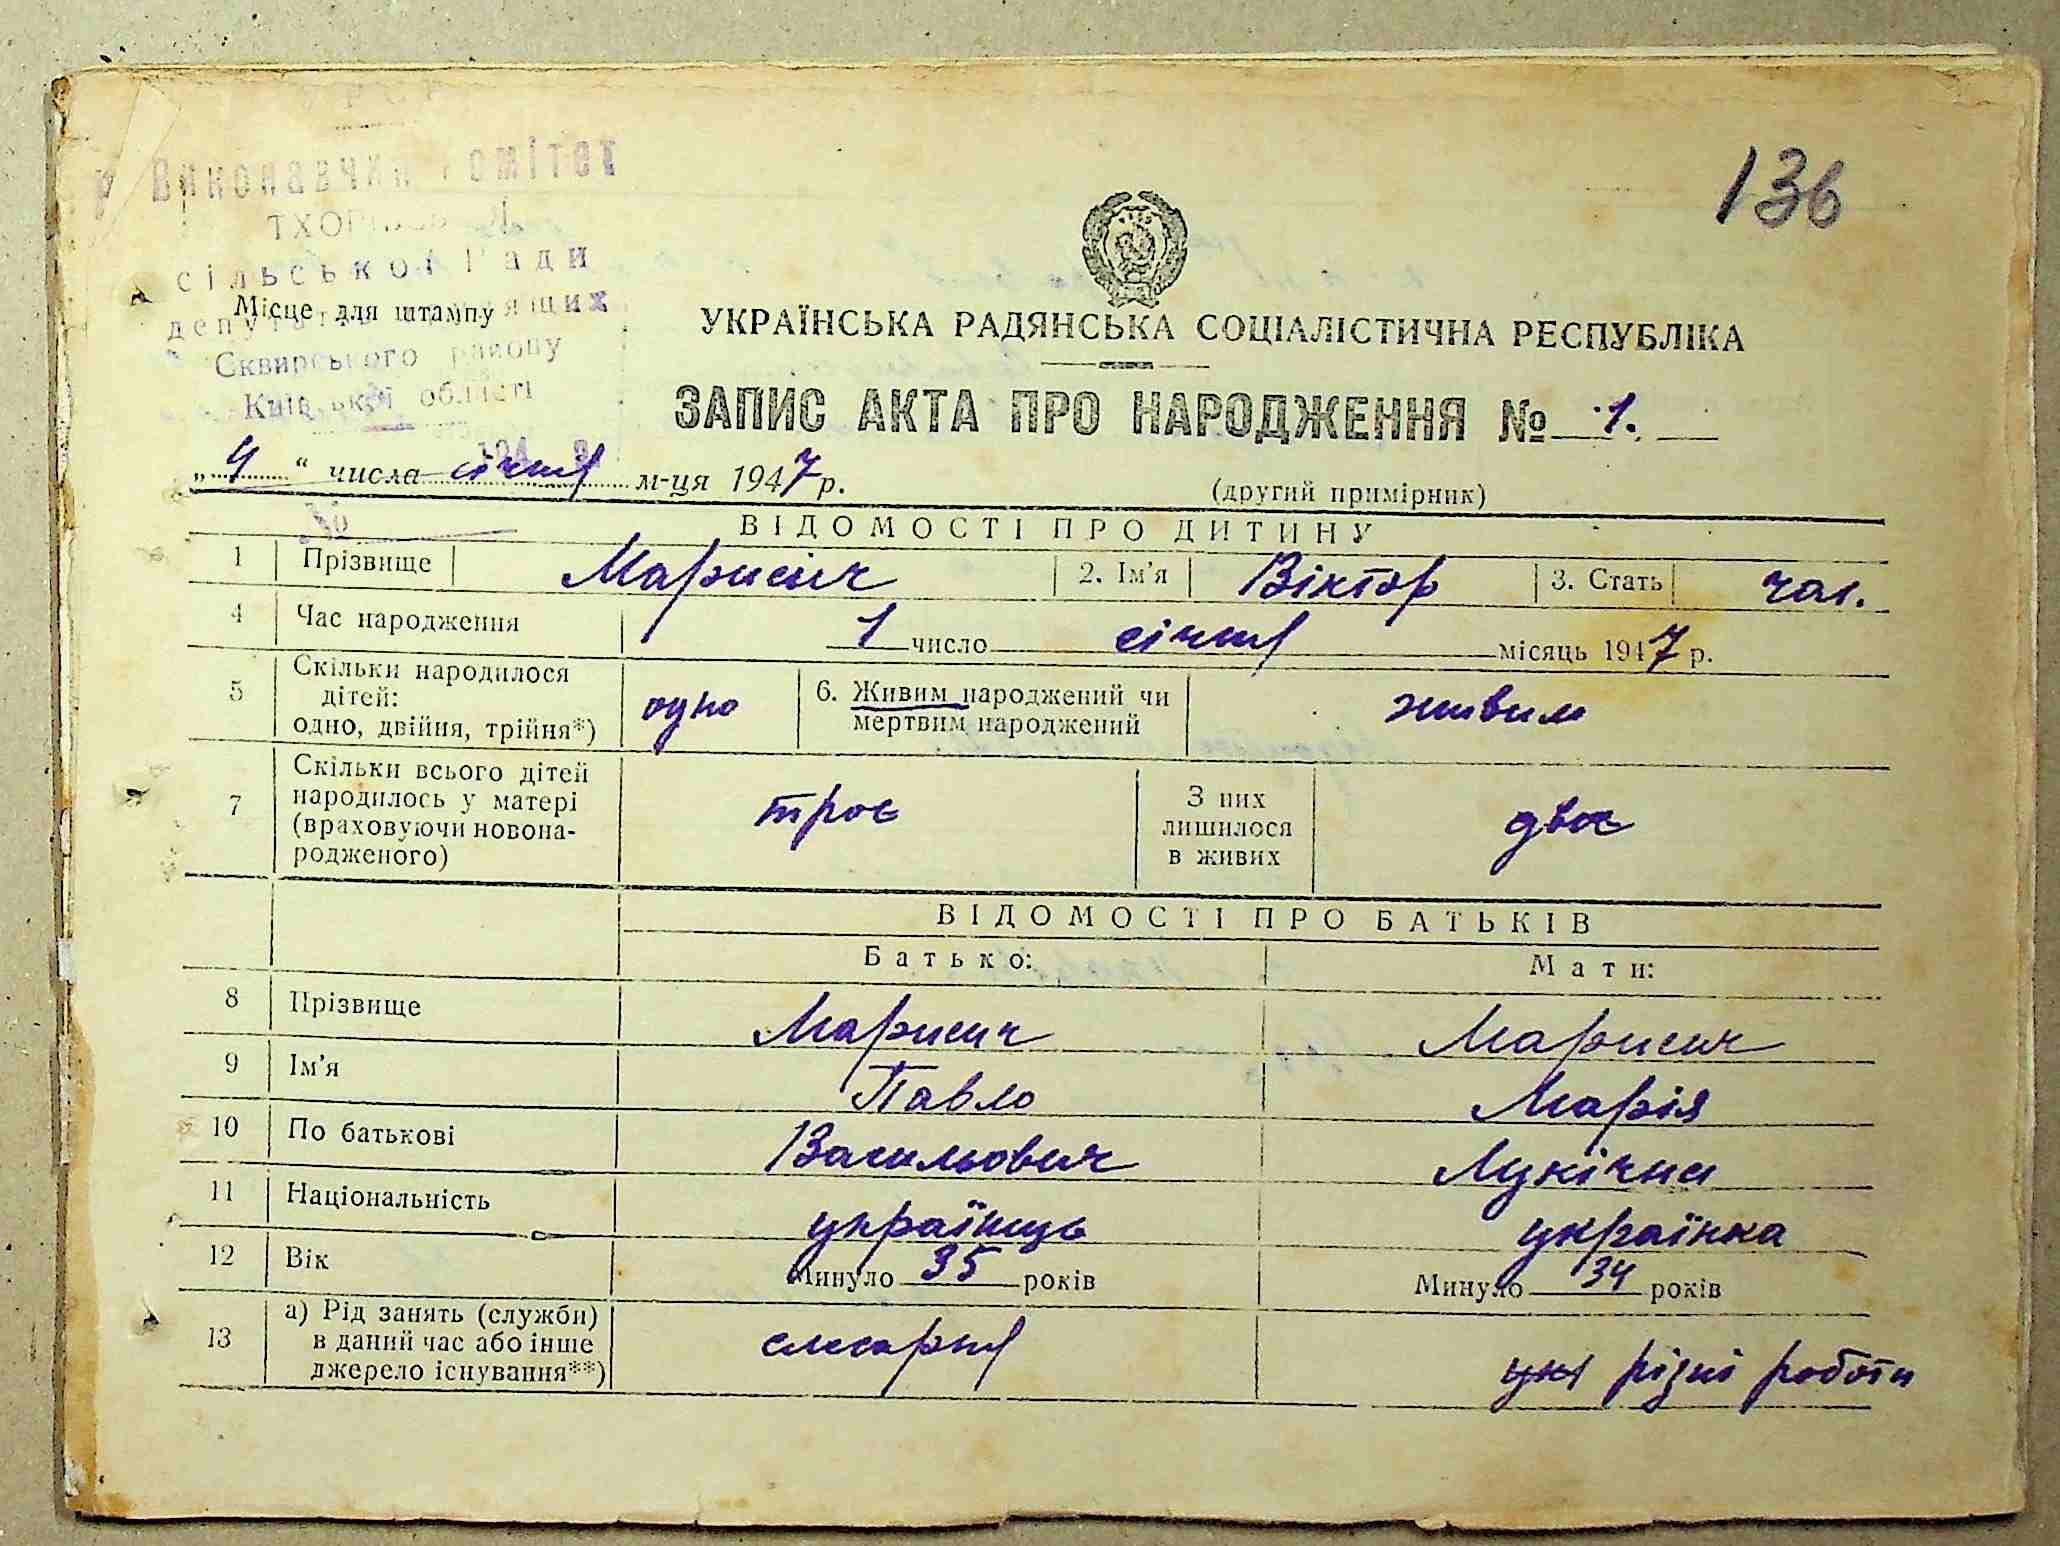 136
Виконавчий Комітет
сільської Ради
Місце для штампу
Сквирського району
Київської області
УКРАЇНСЬКА РАДЯНСЬКА СОЦІАЛІСТИЧНА РЕСПУБЛІКА
ЗАПИС АКТА ПРО НАРОДЖЕННЯ № 1.
„4“ числа січня м-ця 1947 р.
(другий примірник)
ВІДОМОСТІ ПРО ДИТИНУ
1 Прізвище Марисич 2. Ім'я Віктор 3. Стать чол.
4 Час народження 1 число січня місяць 1947 р.
5 Скільки народилося
дітей:
одно, двійня, трійня*) одно 6. Живим народжений чи
мертвим народжений живим
7 Скільки всього дітей
народилось у матері
(враховуючи новона-
родженого) троє З них
лишилося
в живих двоє
ВІДОМОСТІ ПРО БАТЬКІВ
Батько: Мати:
8 Прізвище Марисич Марисич
9 Ім'я Павло Марія
10 По батькові Васильович Лукічна
11 Національність українець українка
12 Вік Минуло 35 років Минуло 34 років
13 а) Рід занять (служби)
в даний час або інше
джерело існування**) слюсарня різні роботи